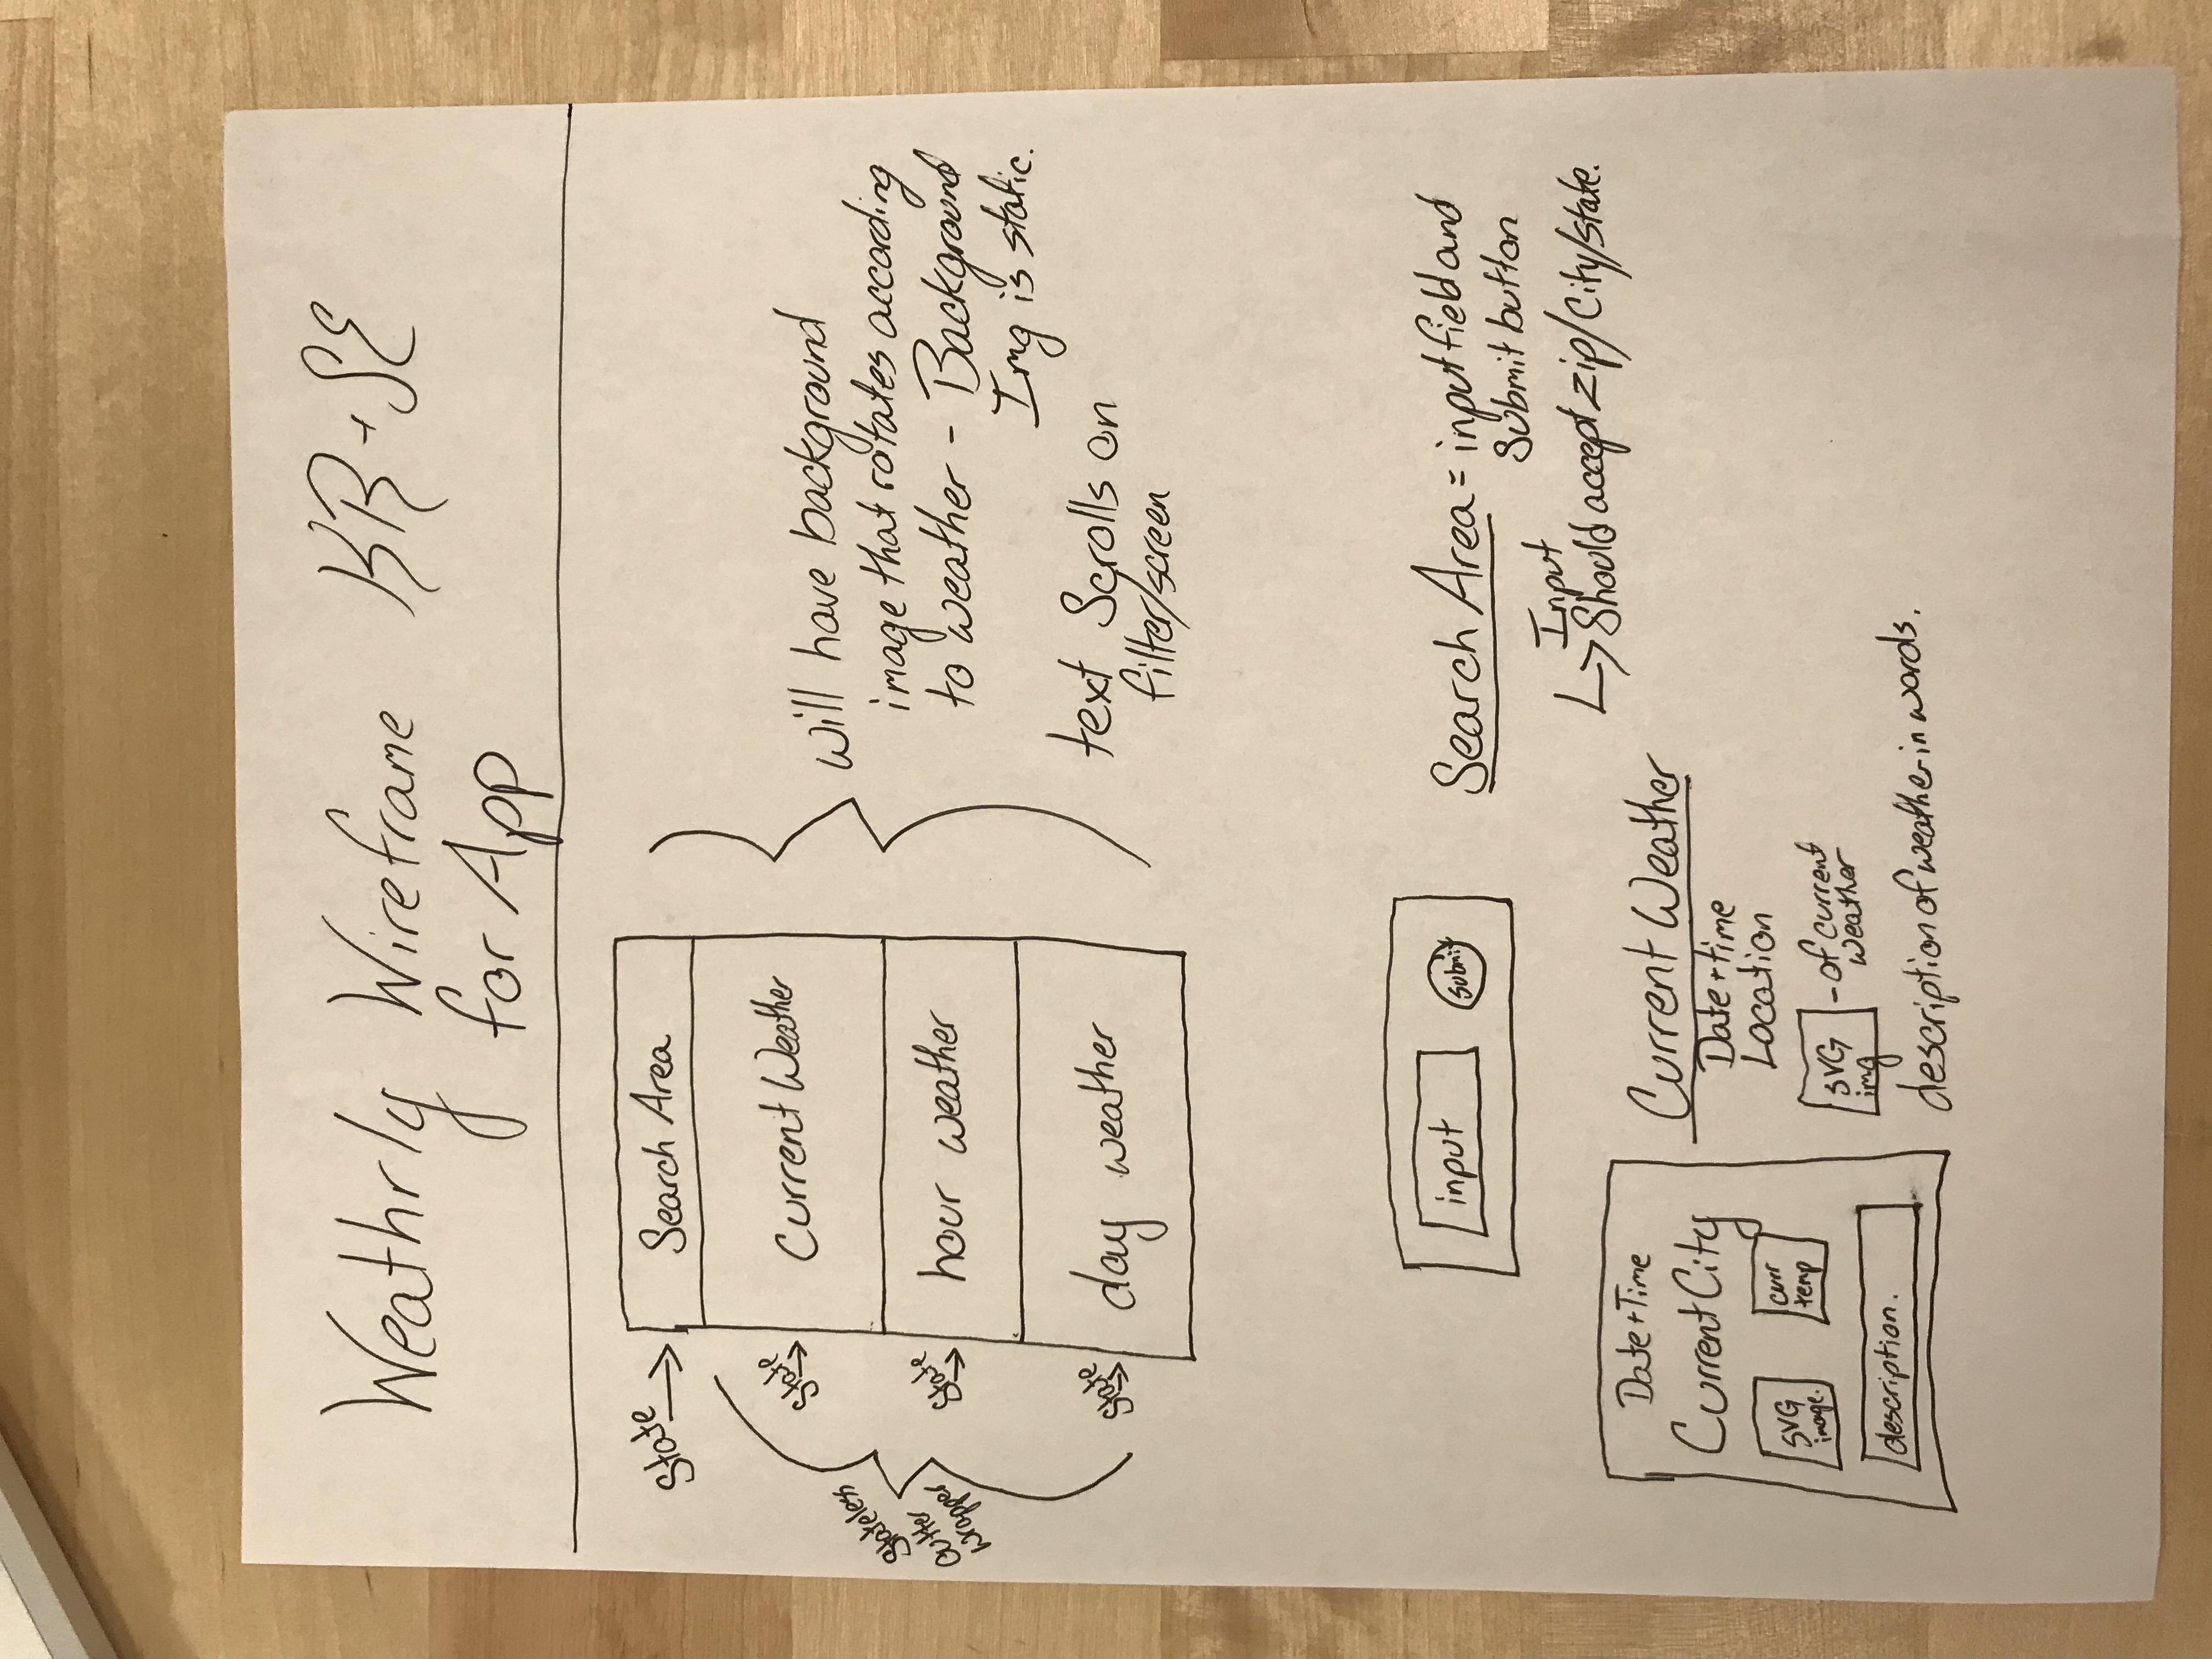 Weathrly Wireframe KR+SE
for App
State
Search Area
State
Current Weather
Stateless
Outter
wrapper
State
hour weather
State
day weather
will have background
image that rotates according
to weather - Background
Img is static.
text Scrolls on
filter/screen
input
submit
Search Area = input field and
Submit button
Input
Should accept zip/City/state.
Date+Time
Current City
SVG
image.
curr
temp
description.
Current Weather
Date+time
Location
SVG
img
- of current
weather
description of weather in words.